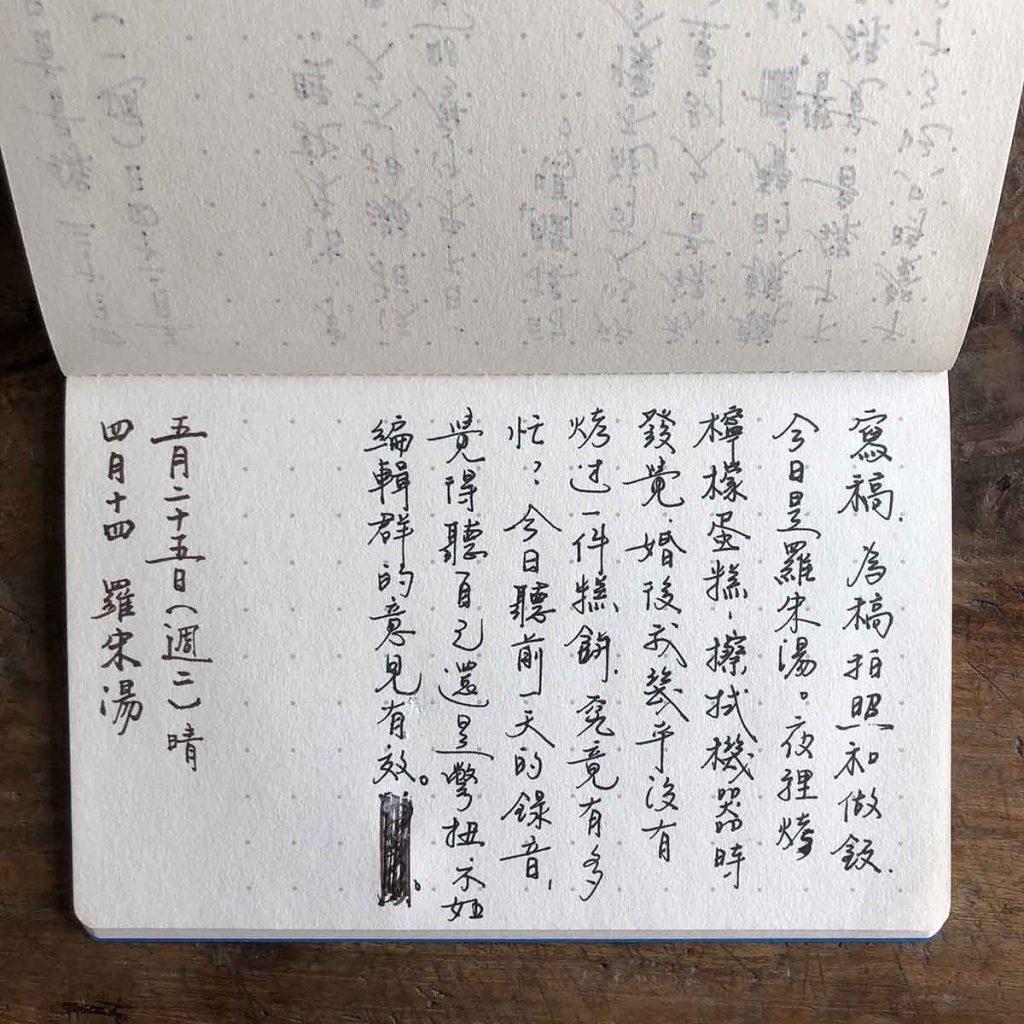 寫稿、為稿拍照和做飯.
今日是羅宋湯。夜裡烤
檸檬蛋糕，擦拭機器時
發覺，婚後我幾乎沒有
烤过一件糕餅，究竟有多
忙？今日聽前一天的錄音，
覺得聽自己還是彆扭不如
編輯群的意見有效。
五月二十五日（週二）晴
四月十四 羅宋湯